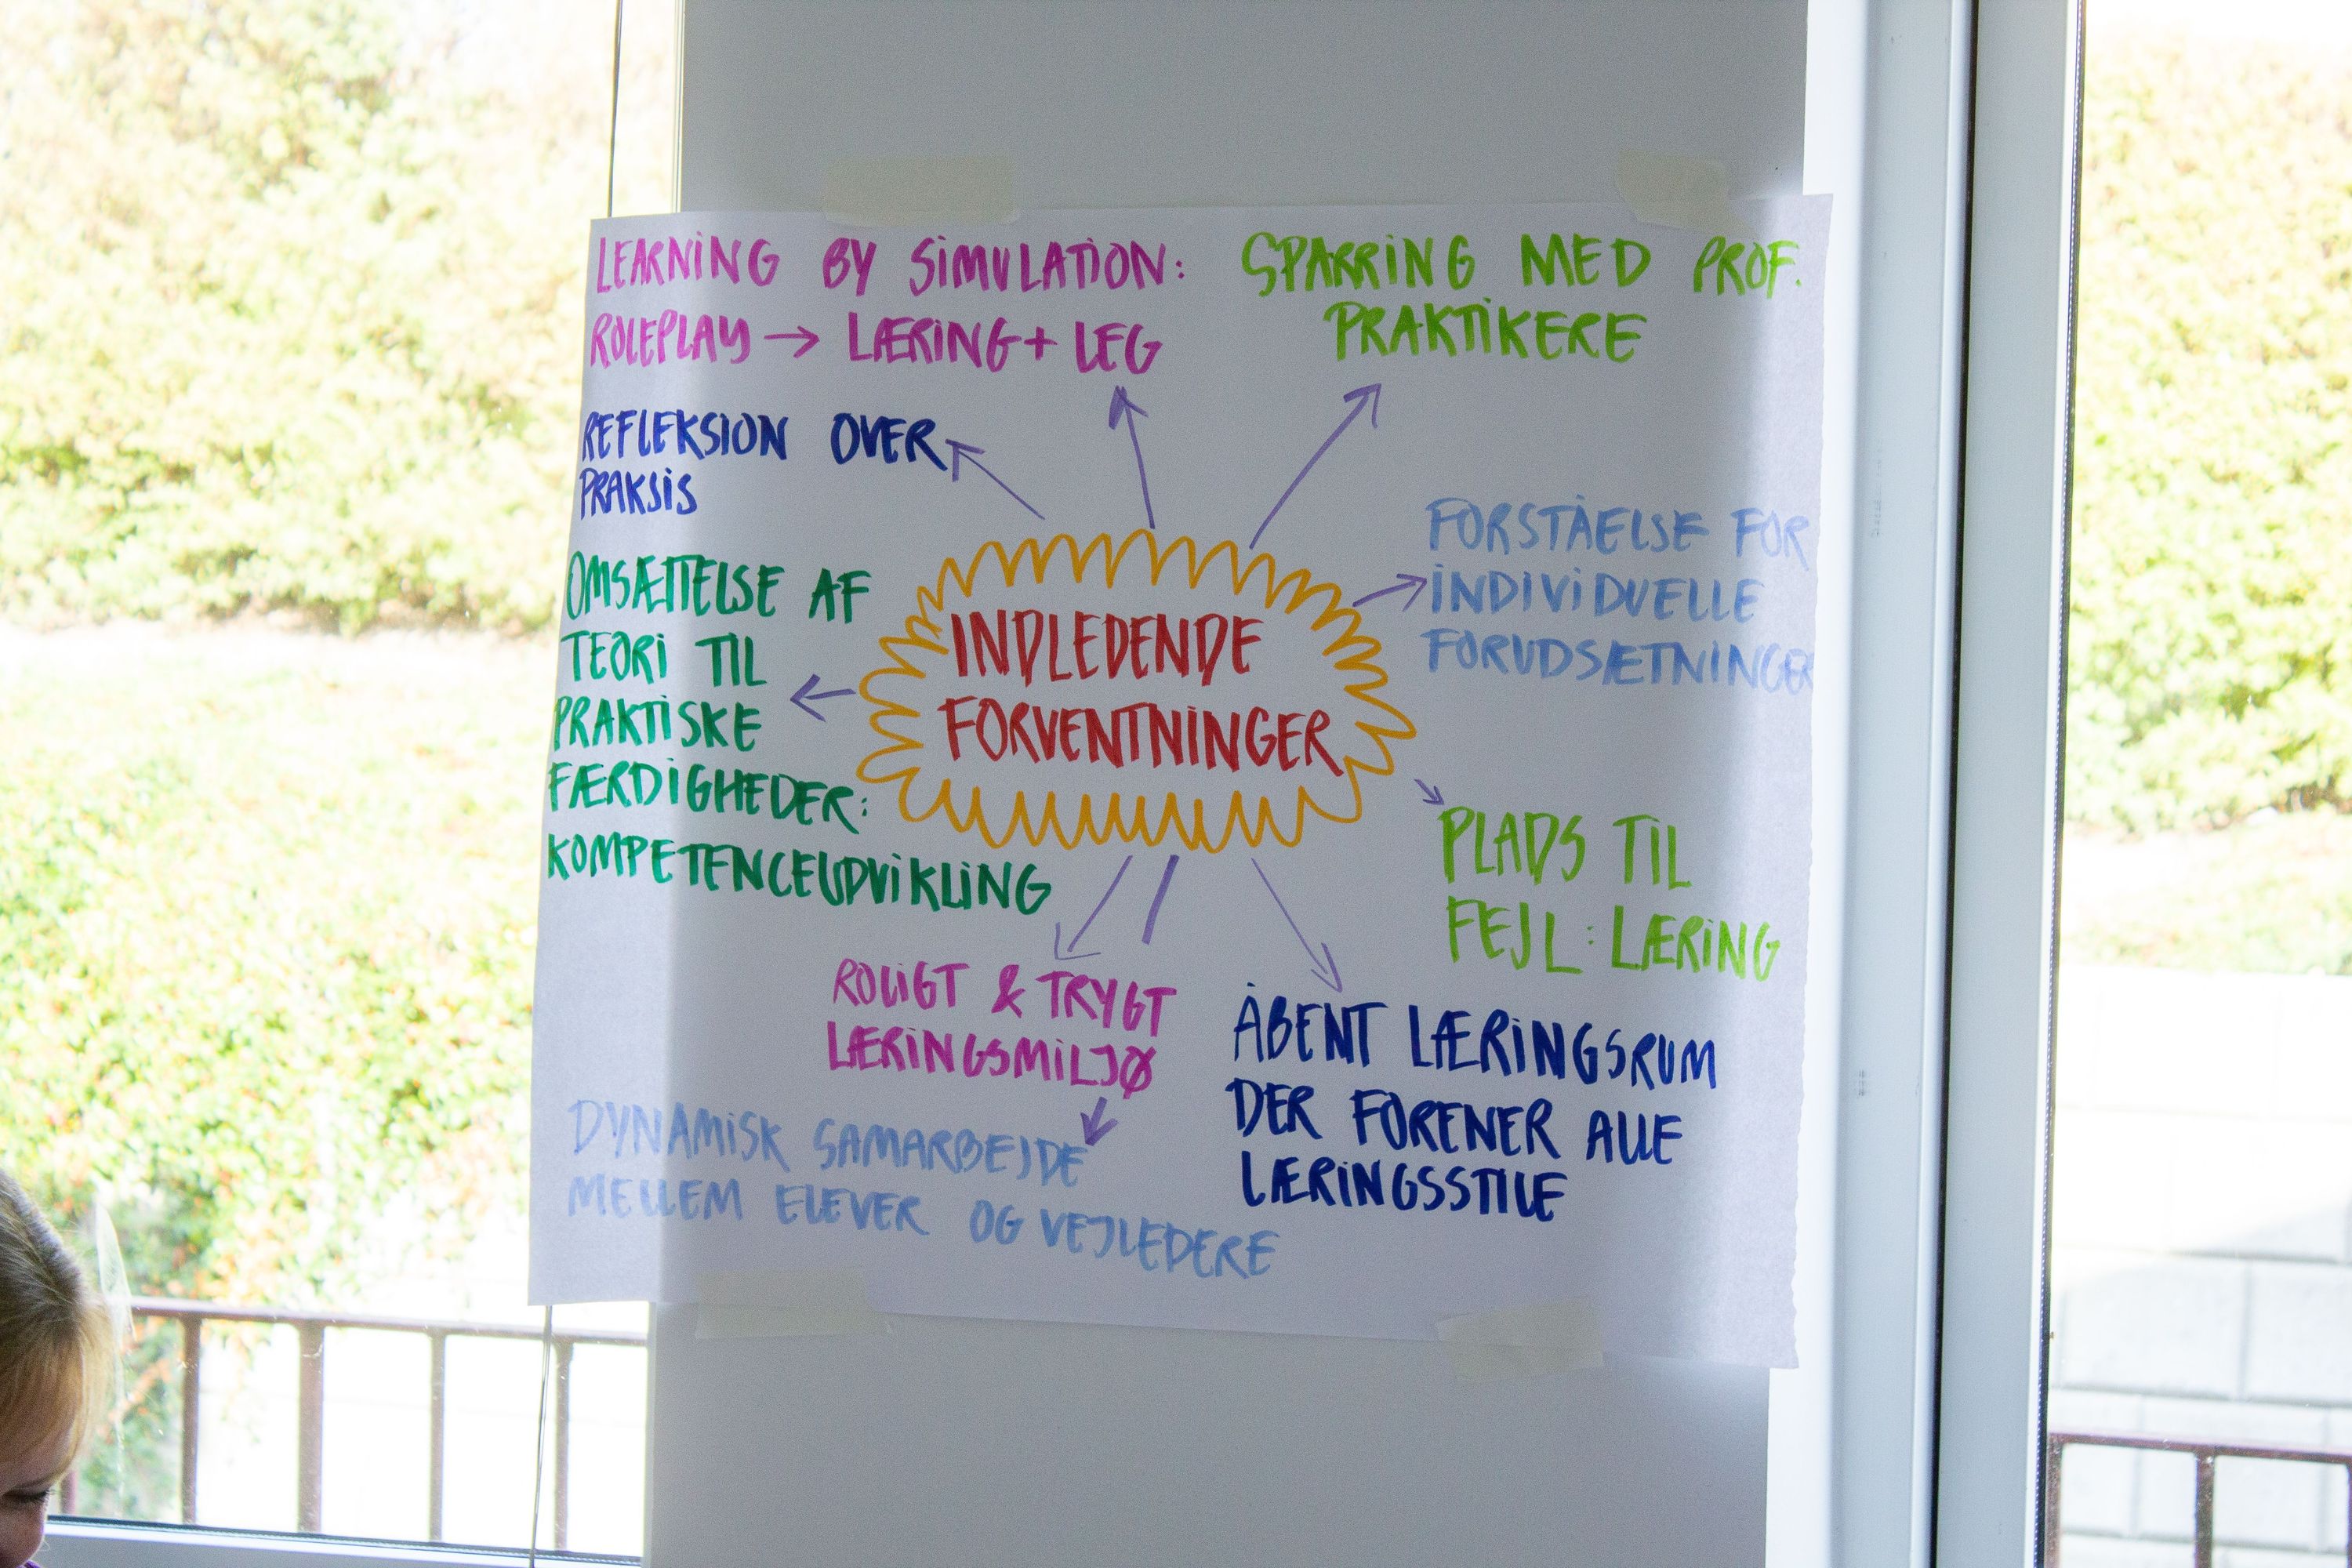 LEARNING BY SIMULATION:
ROLEPLAY → LÆRING + LEG
SPARRING MED PROF.
PRAKTIKERE
REFLEKSION OVER
PRAKSIS
FORSTÅELSE FOR
INDIVIDUELLE
FORUDSÆTNINGER
OMSÆTTELSE AF
TEORI TIL
PRAKTISKE
FÆRDIGHEDER:
KOMPETENCEUDVIKLING
INDLEDENDE
FORVENTNINGER
PLADS TIL
FEJL: LÆRING
ROLIGT & TRYGT
LÆRINGSMILJØ
ÅBENT LÆRINGSRUM
DER FORENER ALLE
LÆRINGSSTILE
DYNAMISK SAMARBEJDE
MELLEM ELEVER OG VEJLEDERE